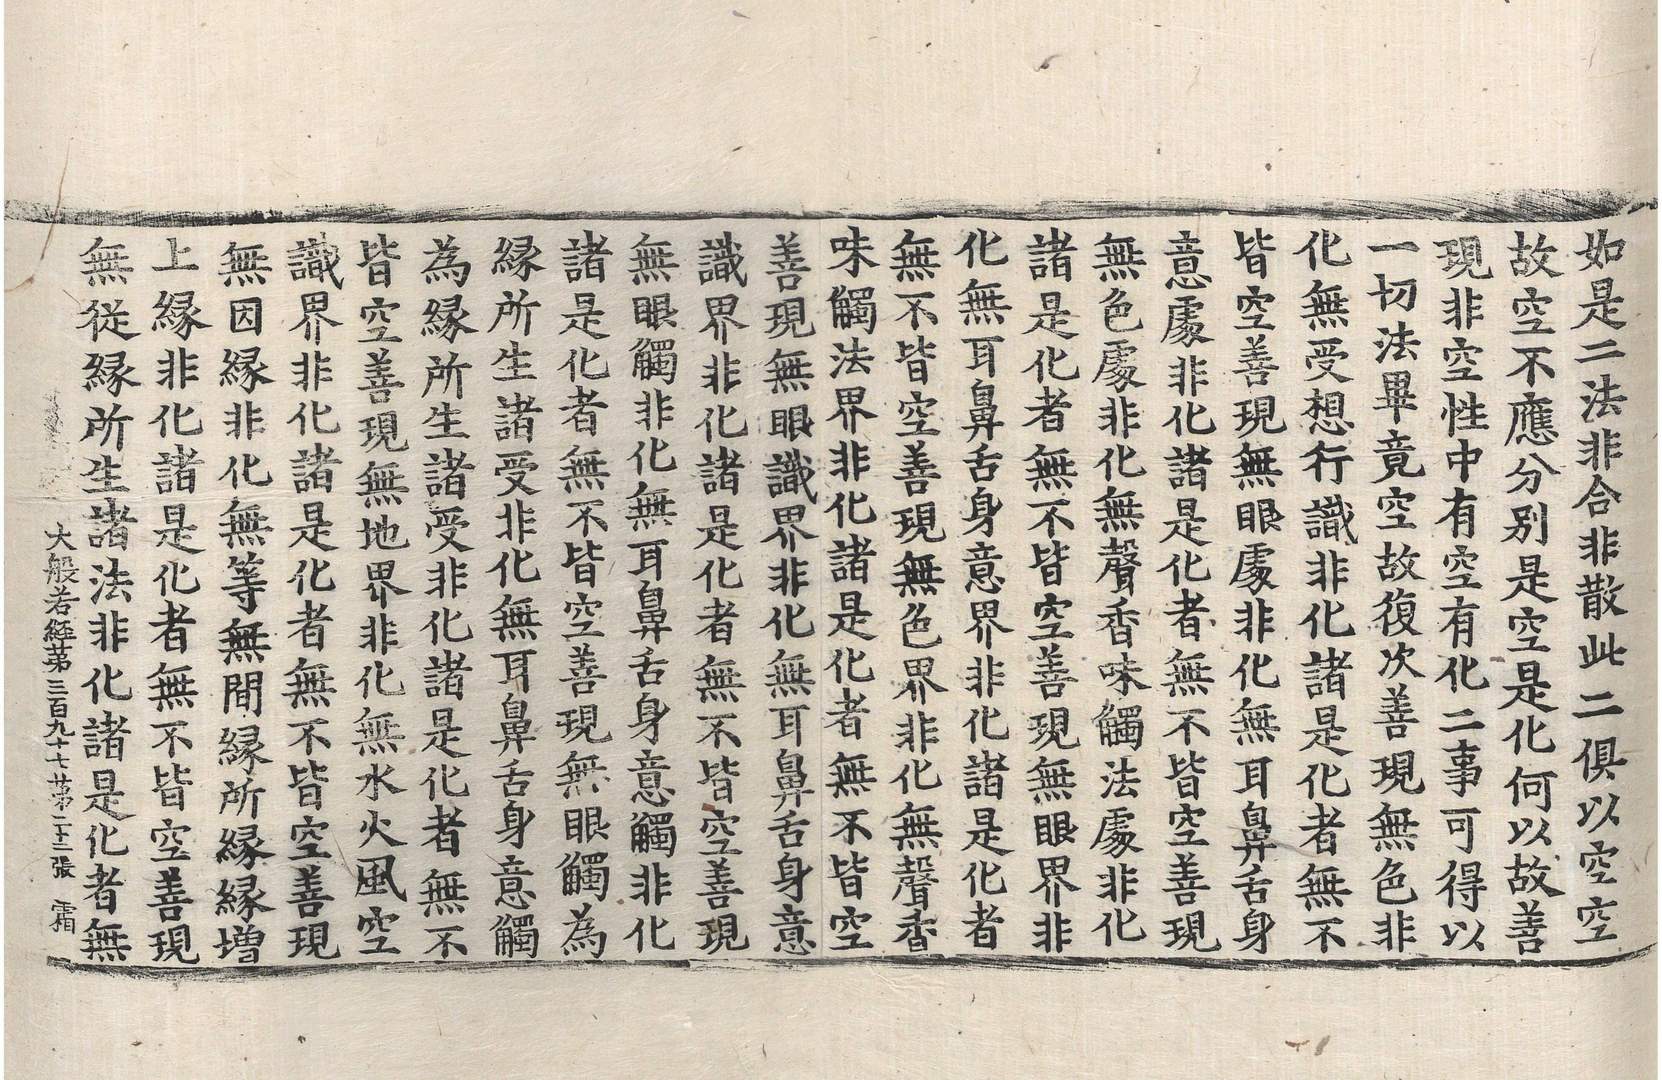 如是二法非合非散此二俱以空空
故空不應分别是空是化何以故善
現非空性中有空有化二事可得以
一切法畢竟空故復次善現無色非
化無受想行識非化諸是化者無不
皆空善現無眼處非化無耳鼻舌身
意處非化諸是化者無不皆空善現
無色處非化無聲香味觸法處非化
諸是化者無不皆空善現無眼界非
化無耳鼻舌身意界非化諸是化者
無不皆空善現無色界非化無聲香
味觸法界非化諸是化者無不皆空
善現無眼識界非化無耳鼻舌身意
識界非化諸是化者無不皆空善現
無眼觸非化無耳鼻舌身意觸非化
諸是化者無不皆空善現無眼觸為
緣所生諸受非化無耳鼻舌身意觸
為緣所生諸受非化諸是化者無不
皆空善現無地界非化無水火風空
識界非化諸是化者無不皆空善現
無因緣非化無等無間緣所緣緣增
上緣非化諸是化者無不皆空善現
無從緣所生諸法非化諸是化者無
大般若經第三百九十七 第二十二張 霜